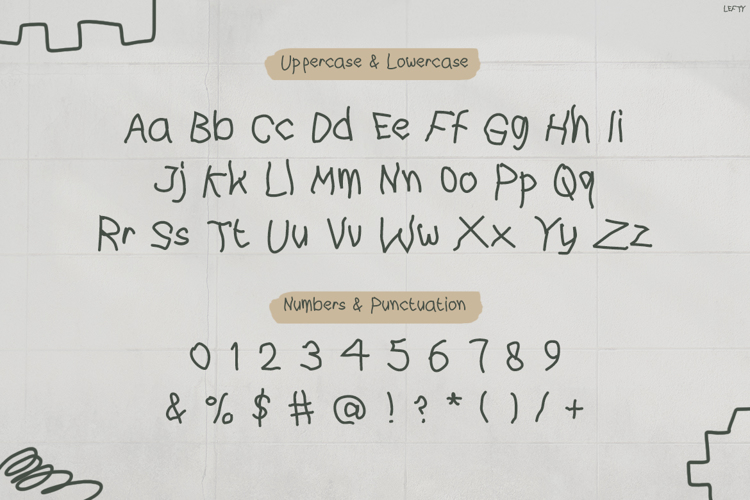 LEFTY
Uppercase & Lowercase
Aa Bb Cc Dd Ee Ff Gg Hh Ii
Jj Kk Ll Mm Nn Oo Pp Qq
Rr Ss Tt Uu Vv Ww Xx Yy Zz
Numbers & Punctuation
0 1 2 3 4 5 6 7 8 9
& % $ # @ ! ? * ( ) / +